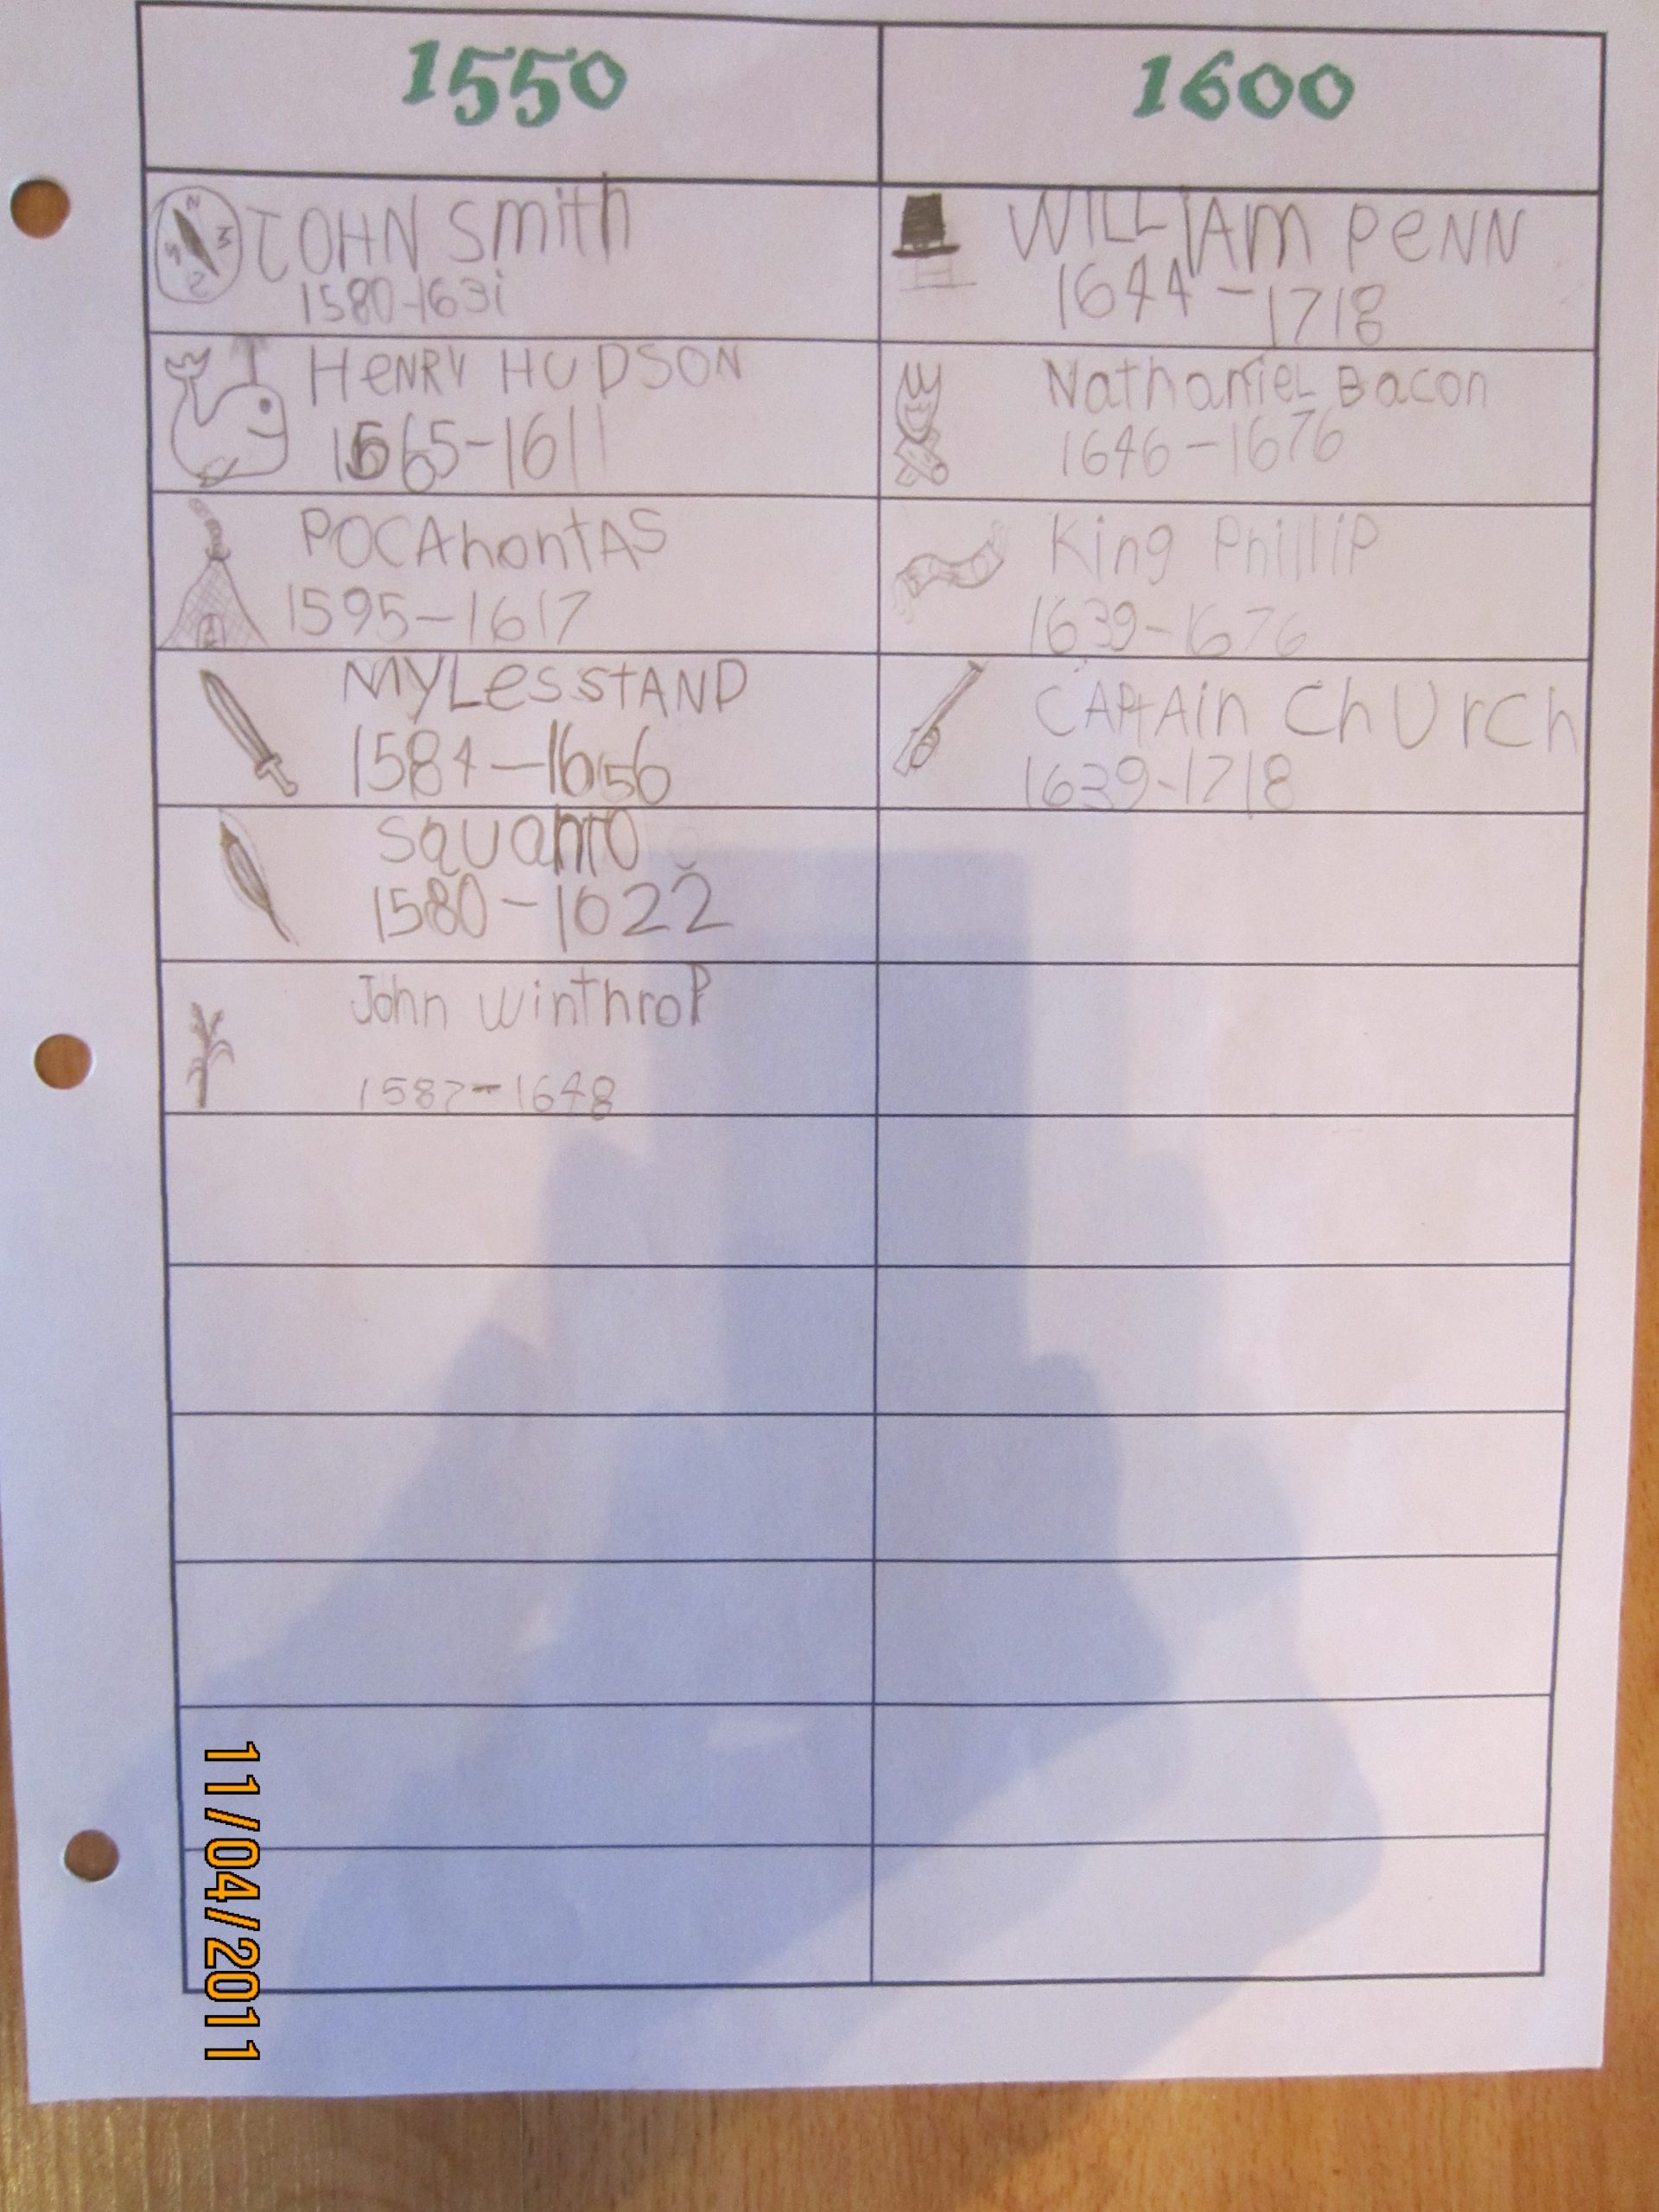 1550
1600
JOHN Smith
1580-1631
WILLIAM PeNN
1644-1718
HeNRY HUDSON
1565-1611
Nathaniel Bacon
1646-1676
POCAhontAS
1595-1617
King Phillip
1639-1676
MYLesstAND
1584-1656
CAPtAin ChUrCh
1639-1718
SQUanTO
1580-1622
John winthroP
1587-1648
11/04/2011